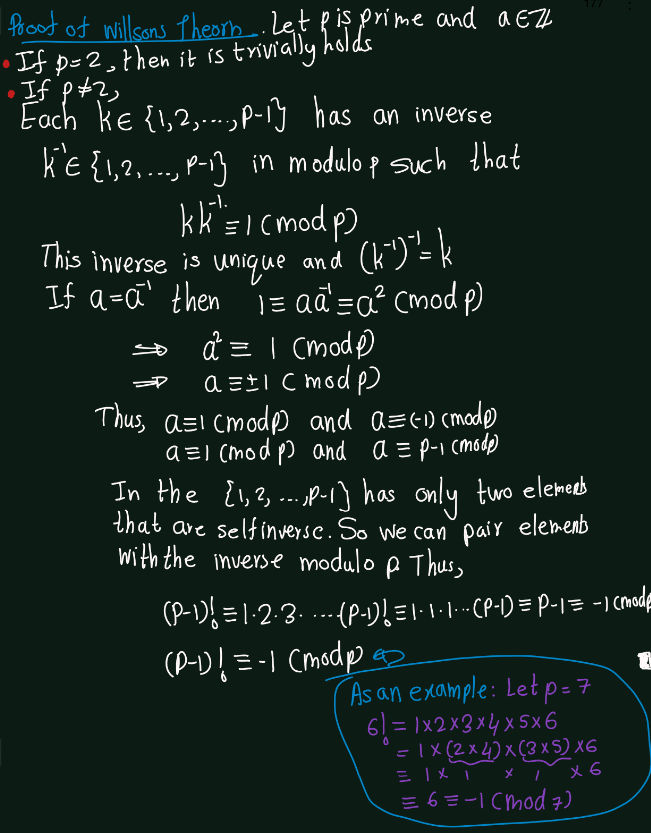 177
Proof of Willsons Theorm. Let p is prime and a ∈ ℤ
• If p=2, then it is trivially holds
• If p≠2,
Each k ∈ {1,2,....,p-1} has an inverse
k⁻¹ ∈ {1,2,...,p-1} in modulo p such that
kk⁻¹ ≡ 1 (mod p)
This inverse is unique and (k⁻¹)⁻¹ = k
If a=a⁻¹ then 1 ≡ aa⁻¹ ≡ a² (mod p)
⇒ a² ≡ 1 (mod p)
⇒ a ≡ ±1 (mod p)
Thus, a≡1 (mod p) and a≡(-1) (mod p)
a≡1 (mod p) and a ≡ p-1 (mod p)
In the {1,2,...,p-1} has only two elements
that are self inverse. So we can pair elements
with the inverse modulo p Thus,
(p-1)! ≡ 1·2·3·....(p-1)! ≡ 1·1·1···(p-1) ≡ p-1 ≡ -1 (mod p
(p-1)! ≡ -1 (mod p
As an example: Let p=7
6! = 1×2×3×4×5×6
= 1×(2×4)×(3×5)×6
≡ 1 × 1 × 1 × 6
≡ 6 ≡ -1 (mod 7)